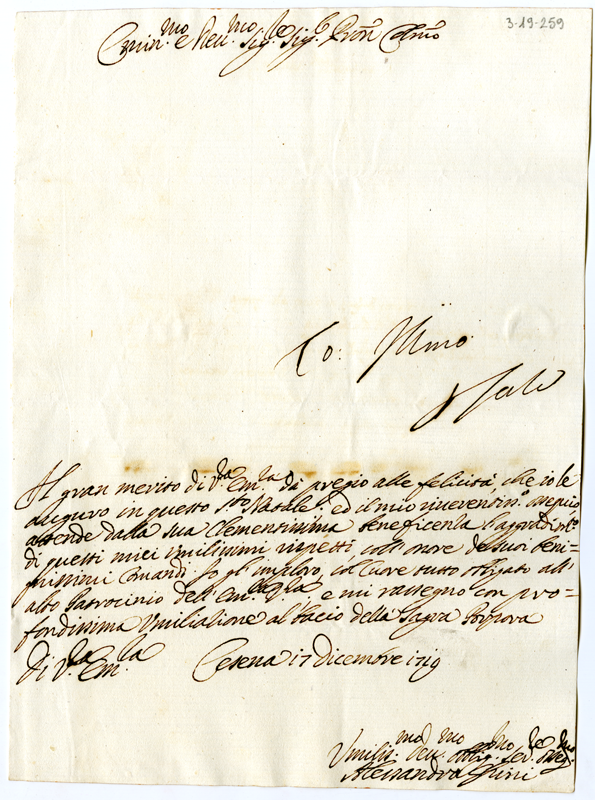 3-19-259
Emin.mo e Reu.mo Sig.re Sig.r Pron Colmo
Il gran merito di V.ra Em.za dà pregio alle felicità, che io le
auguro in questo S.to Natale, ed il mio riuerentis.o
attende dalla sua Clementissima beneficenza
di questi miei umilissimi rispetti, coll'onore de suoi beni=
gnissimi Comandi. Io gl'imploro, col tutto obligato all'
alto Patrocinio dell'Em.za V.ra e mi rassegno con pro=
fondissima Vmiliazione al bacio della Sagra Porpora
di V.ra Em.za Cesena 17 dicembre 1719
Vmilis.mo deu.mo
Alessandro